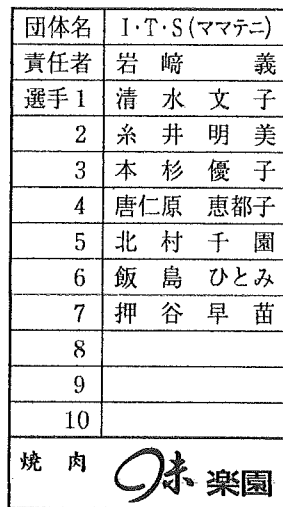 団体名 I・T・S(ママテニ)
責任者 岩﨑 義
選手1 清水文子
2 糸井明美
3 本杉優子
4 唐仁原 恵都子
5 北村千園
6 飯島 ひとみ
7 押谷早苗
8
9
10
焼肉 味楽園